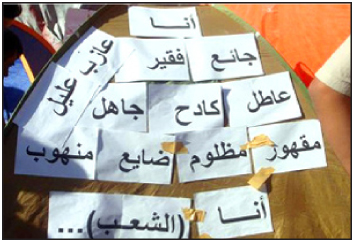 أنا
جائع فقير عازب عليل
عاطل كادح جاهل
مقهور مظلوم ضايع منهوب
أنا (الشعب)...